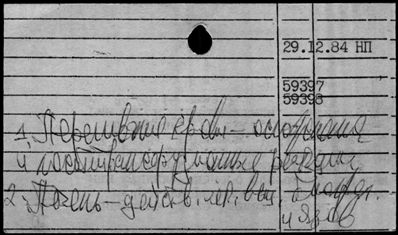 29.12.84 НП
59397
59398
1. Переливание крови - осложнения
и посттрансфузионные реакции
2. Печень - действ. лек. вещ.
и ядов